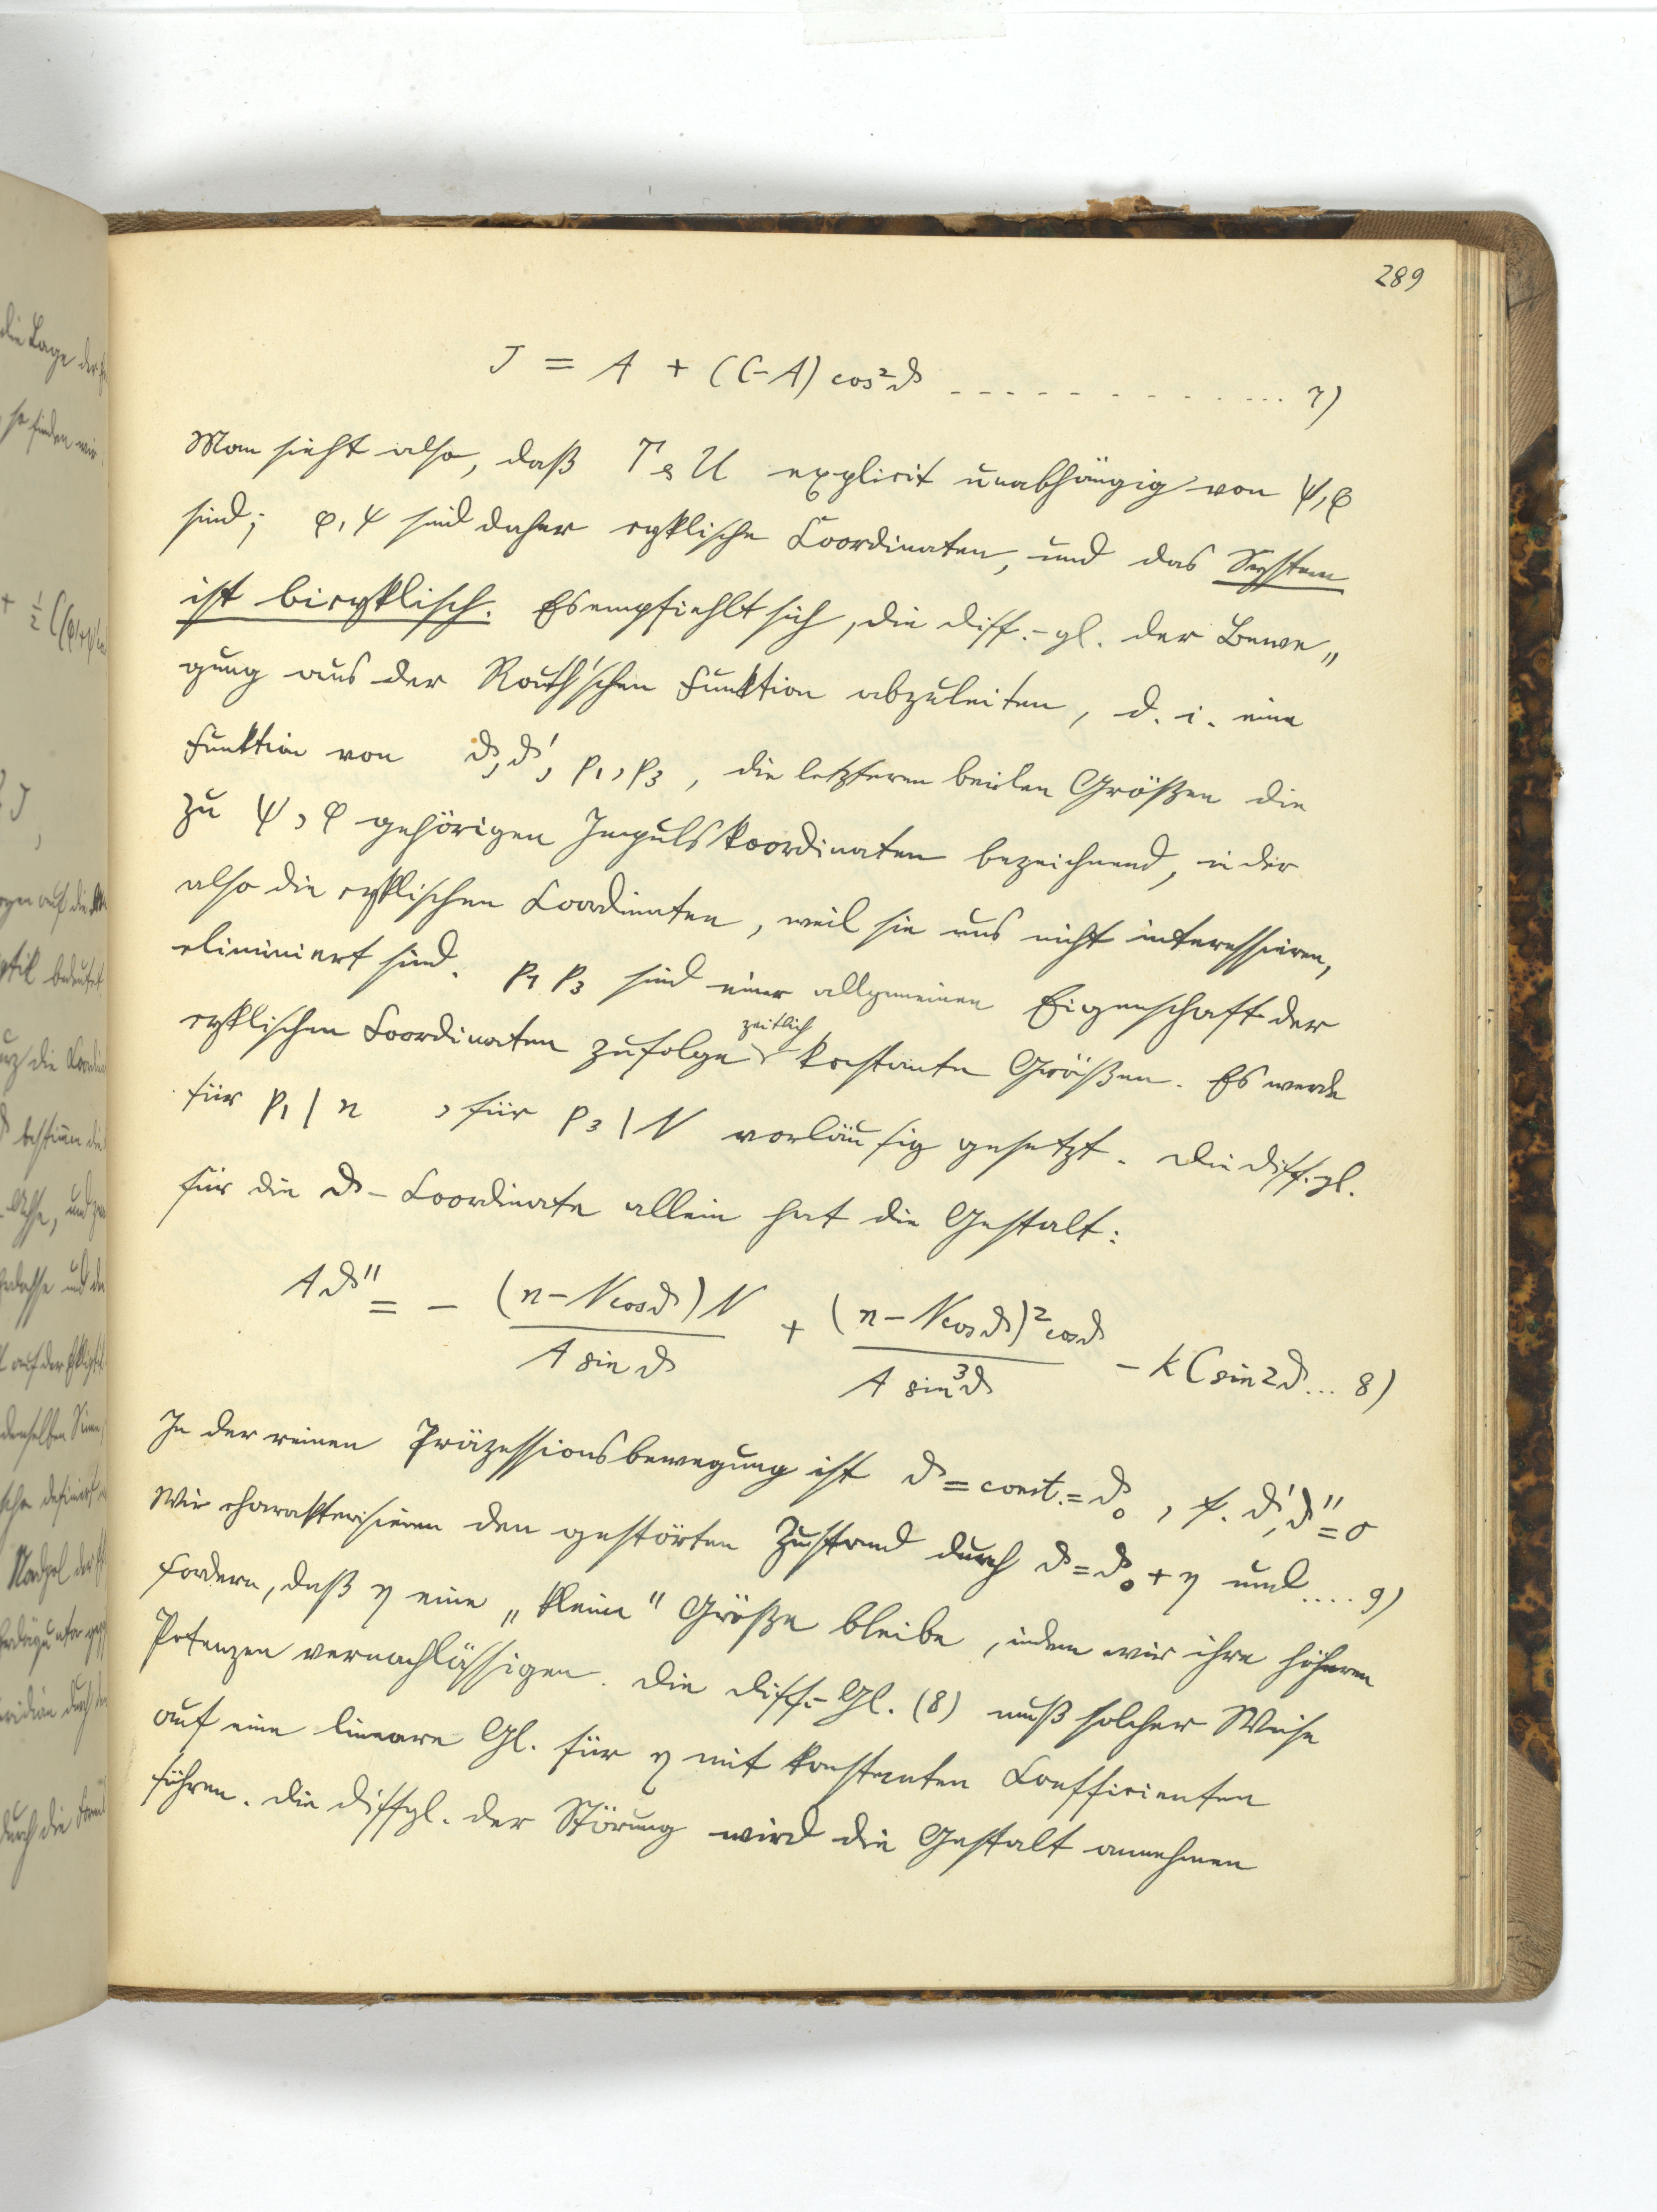 289
J = A + (C-A) cos²ϑ ............. 7)
Man sieht also, daß T & U explicit unabhängig von ψ, φ
sind; φ, ψ sind daher cyklische Coordinaten, und das System
ist bicyklisch. Es empfiehlt sich, die diff.-gl. der Bewe„
gung aus der Routh'schen Funktion abzuleiten, d. i. eine
Funktion von ϑ, ϑ', p₁, p₃, die letzteren beiden Größen die
zu ψ, φ gehörigen Impulskoordinaten bezeichnend, in der
also die cyklischen Coordinaten, weil sie uns nicht interessieren,
eliminiert sind. p₁ p₃ sind einer allgemeinen Eigenschaft der
cyklischen Coordinaten zufolge zeitlich konstante Größen. Es werde
für p₁ | n , für p₃ | N vorläufig gesetzt. Die Diff.gl.
für die ϑ-Coordinate allein hat die Gestalt:
Aϑ'' = - (n - N cosϑ) N / A sin ϑ + (n - N cos ϑ)² cosϑ / A sin³ϑ - k C sin 2ϑ ... 8)
In der reinen Präzessionsbewegung ist ϑ = const. = ϑ₀, ϑ', ϑ'' = 0
Wir charakterisieren den gestörten Zustand durch ϑ = ϑ₀ + η und .... 9)
fordern, daß η eine „kleine" Größe bleibe, indem wir ihre höheren
Potenzen vernachlässigen. Die Diff.-Gl. (8) muß solcher Weise
auf eine lineare Gl. für η mit konstanten Coefficienten
führen. Die Diffgl. der Störung wird die Gestalt annehmen